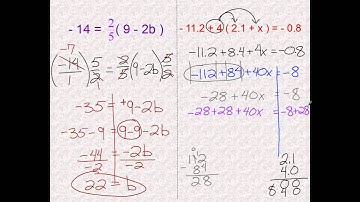 - 14 = 2/5 ( 9 - 2b )
-7
(-14/1) 5/2 = 2/5 (9-2b) 5/2
1
-35 = +9-2b
-35-9 = 9-9-2b
-44/-2 = -2b/-2
22 = b
- 11.2 + 4 ( 2.1 + x ) = - 0.8
-11.2+8.4+4x = -0.8
-112+84+40x = -8
-28 + 40x = -8
-28+28+40x = -8+28
112
-84
28
2.1
4.0
00
840